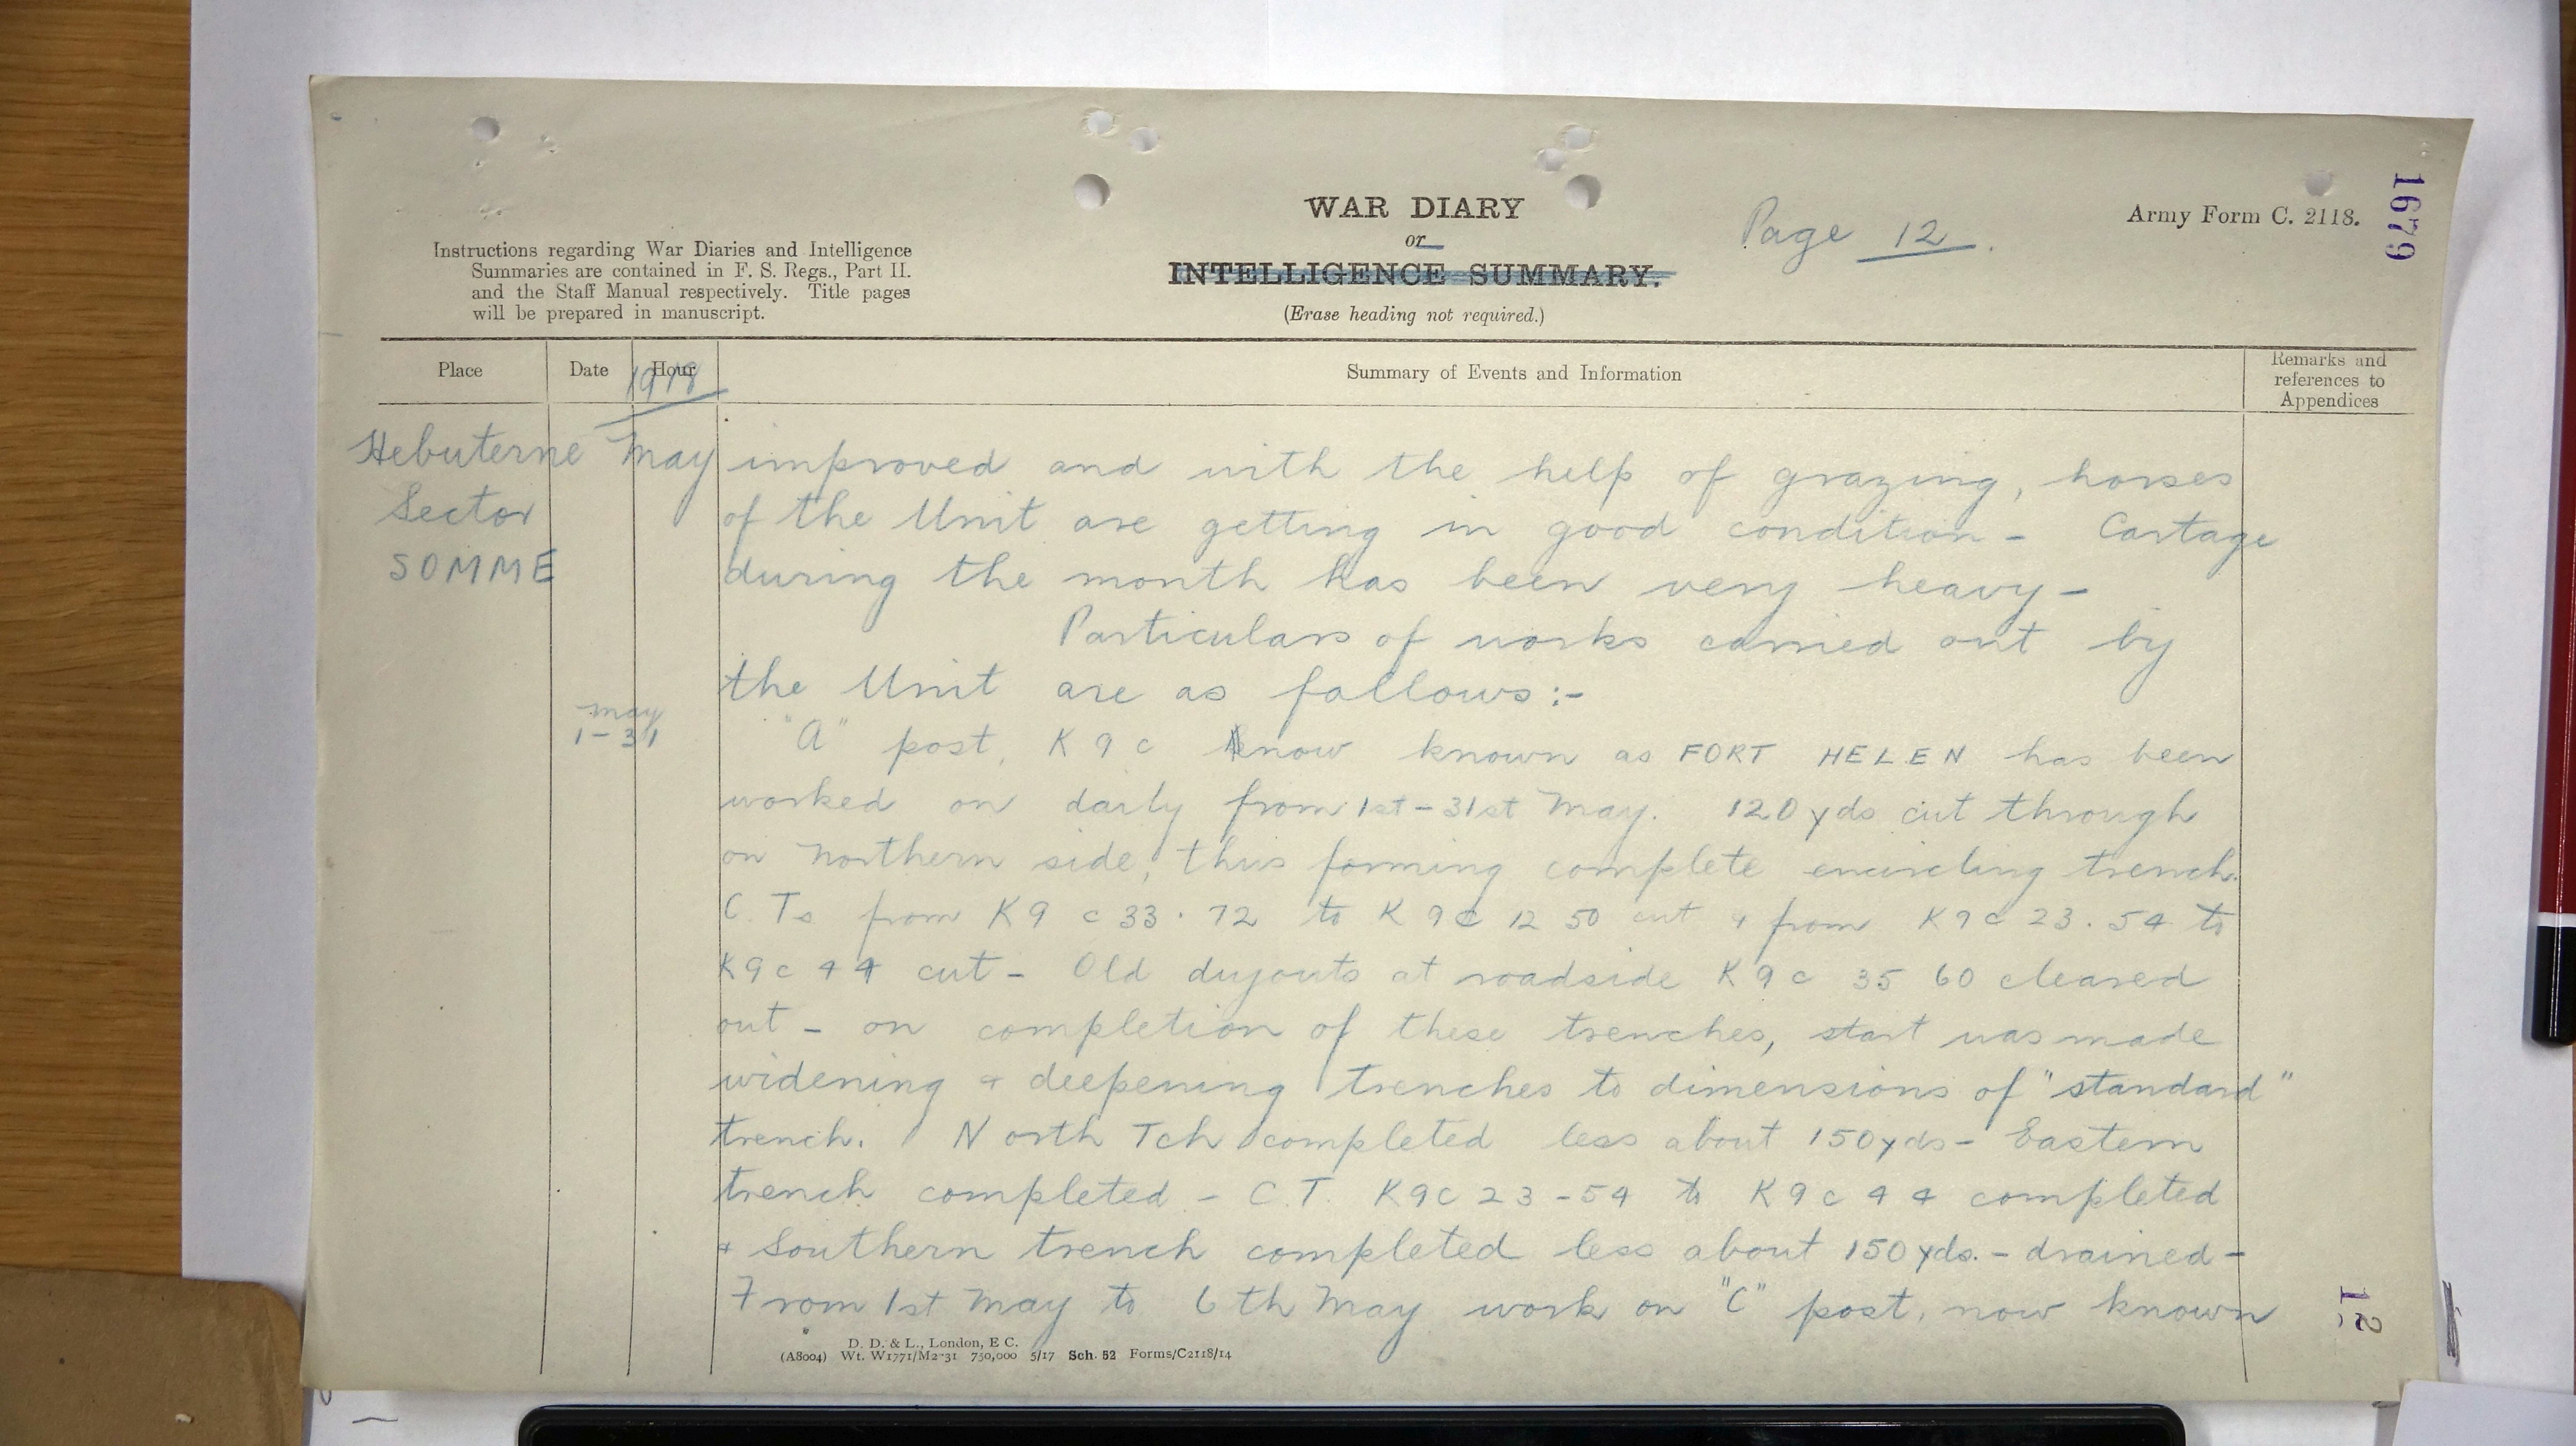 1679
WAR DIARY
or
INTELLIGENCE SUMMARY.
(Erase heading not required.)
Page 12.
Army Form C. 2118.
Instructions regarding War Diaries and Intelligence
Summaries are contained in F. S. Regs., Part II.
and the Staff Manual respectively. Title pages
will be prepared in manuscript.
Place Date Hour Summary of Events and Information Remarks and
references to
Appendices
1918
Hebuterne May improved and with the help of grazing, horses
Sector of the Unit are getting in good condition - Cartage
SOMME during the month has been very heavy -
Particulars of works carried out by
the Unit are as follows :-
May
1-31 "A" post, K 9 c now known as FORT HELEN has been
worked on daily from 1st - 31st May. 120 yds cut through
on northern side, thus forming complete encircling trench.
C. Ts from K9 c 33.72 to K 9 c 12 50 cut & from K9c 23.54 to
K9c 44 cut - Old dugouts at roadside K9c 35 60 cleared
out - on completion of these trenches, start was made
widening & deepening trenches to dimensions of "standard"
trench. North Tch completed less about 150 yds - Eastern
trench completed - C.T. K9c 23-54 to K9c 44 completed
& Southern trench completed less about 150 yds. - drained -
From 1st May to 6th May work on "C" post, now known
12
D. D. & L., London, E C.
(A8004) Wt. W1771/M2 31 750,000 5/17 Sch. 52 Forms/C2118/14